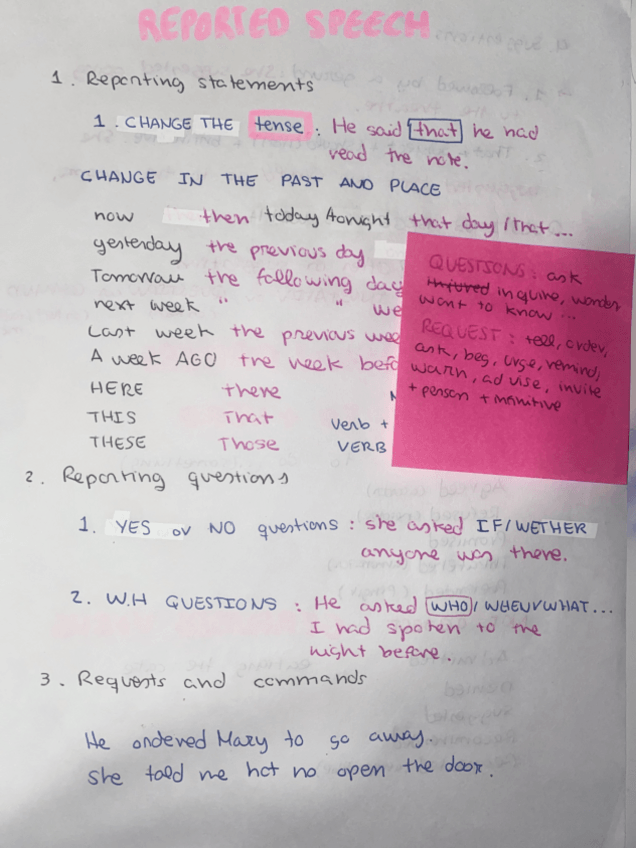 REPORTED SPEECH
1. Reporting statements
1. CHANGE THE tense: He said that he had
read the note.
CHANGE IN THE PAST AND PLACE
now then today /tonight that day / that ...
yesterday the previous day
Tomorrow the following day
next week " " we
Last week the previous wee
A week AGO the week befo
HERE there
THIS That verb +
THESE Those VERB
QUESTIONS: ask
inquire, wonder
want to know ...
REQUEST: tell, order,
ask, beg, urge, remind,
warn, advise, invite
+ person + infinitive
2. Reporting questions
1. YES or NO questions: she asked IF/WETHER
anyone was there.
2. W.H QUESTIONS: He asked WHO/WHEN/WHAT...
I had spoken to the
night before.
3. Requests and commands
He ordered Mary to go away.
She told me not no open the door.